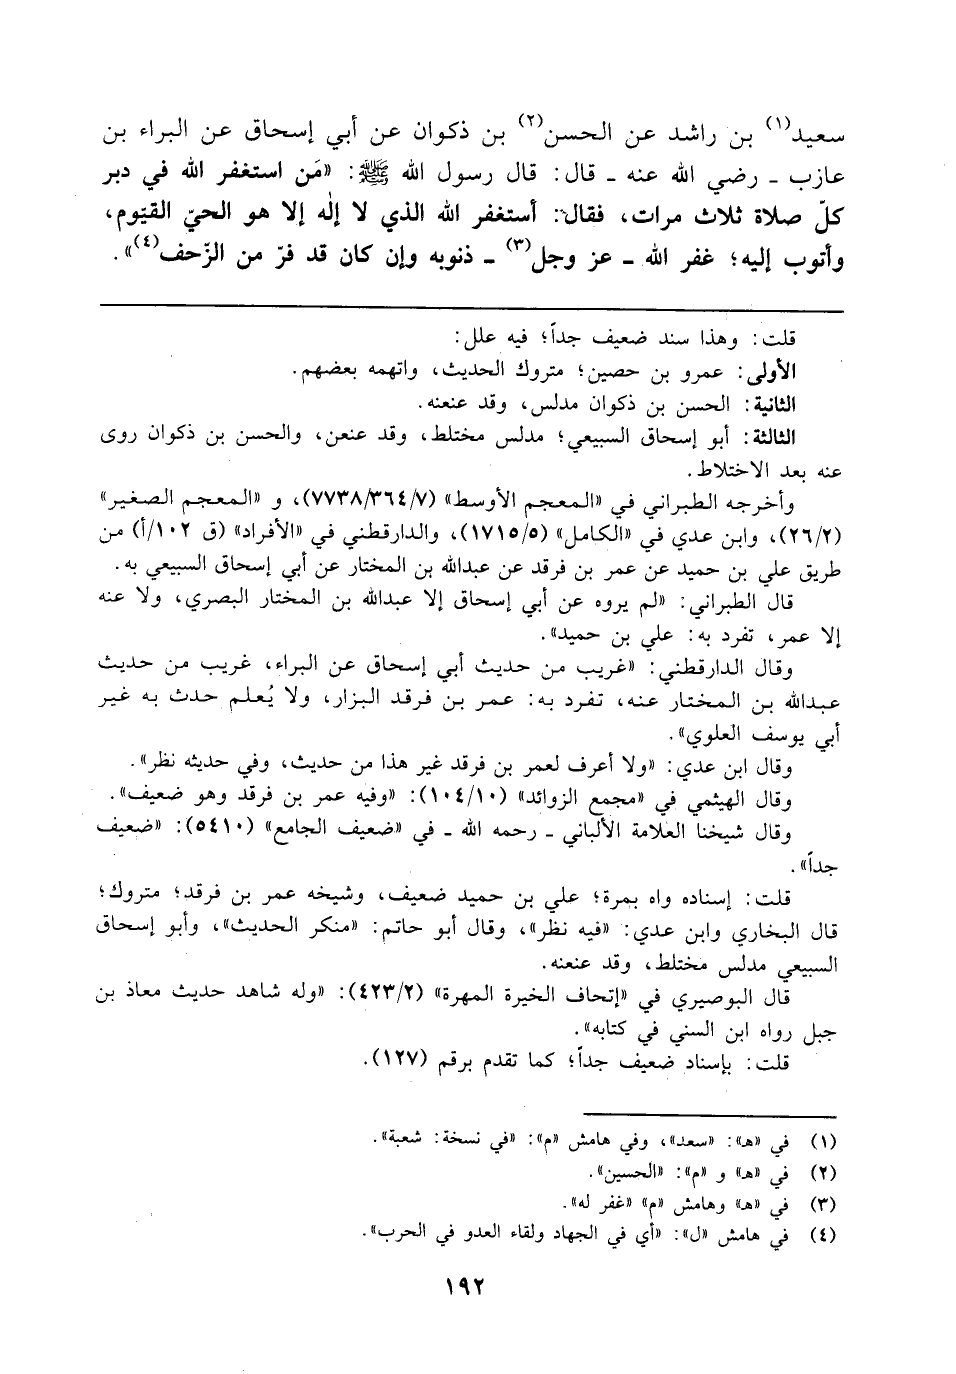 سعيد(١) بن راشد عن الحسن(٢) بن ذكوان عن أبي إسحاق عن البراء بن
عازب ـ رضي الله عنه ـ قال: قال رسول الله ﷺ: «مَن استغفر الله في دبر
كلّ صلاة ثلاث مرات، فقال: أستغفر الله الذي لا إلٰه إلا هو الحيّ القيّوم،
وأتوب إليه؛ غفر الله ـ عز وجل(٣) ـ ذنوبه وإن كان قد فرّ من الزّحف(٤)».
قلت: وهذا سند ضعيف جداً؛ فيه علل:
الأولى: عمرو بن حصين؛ متروك الحديث، واتهمه بعضهم.
الثانية: الحسن بن ذكوان مدلس، وقد عنعنه.
الثالثة: أبو إسحاق السبيعي؛ مدلس مختلط، وقد عنعن، والحسن بن ذكوان روى
عنه بعد الاختلاط.
وأخرجه الطبراني في «المعجم الأوسط» (٧/٣٦٤/٧٧٣٨)، و «المعجم الصغير»
(٢/٢٦)، وابن عدي في «الكامل» (٥/١٧١٥)، والدارقطني في «الأفراد» (ق ١٠٢/أ) من
طريق علي بن حميد عن عمر بن فرقد عن عبدالله بن المختار عن أبي إسحاق السبيعي به.
قال الطبراني: «لم يروه عن أبي إسحاق إلا عبدالله بن المختار البصري، ولا عنه
إلا عمر، تفرد به: علي بن حميد».
وقال الدارقطني: «غريب من حديث أبي إسحاق عن البراء، غريب من حديث
عبدالله بن المختار عنه، تفرد به: عمر بن فرقد البزار، ولا يُعلم حدث به غير
أبي يوسف العلوي».
وقال ابن عدي: «ولا أعرف لعمر بن فرقد غير هذا من حديث، وفي حديثه نظر».
وقال الهيثمي في «مجمع الزوائد» (١٠/١٠٤): «وفيه عمر بن فرقد وهو ضعيف».
وقال شيخنا العلامة الألباني ـ رحمه الله ـ في «ضعيف الجامع» (٥٤١٠): «ضعيف
جداً».
قلت: إسناده واه بمرة؛ علي بن حميد ضعيف، وشيخه عمر بن فرقد؛ متروك؛
قال البخاري وابن عدي: «فيه نظر»، وقال أبو حاتم: «منكر الحديث»، وأبو إسحاق
السبيعي مدلس مختلط، وقد عنعنه.
قال البوصيري في «إتحاف الخيرة المهرة» (٢/٤٢٣): «وله شاهد حديث معاذ بن
جبل رواه ابن السني في كتابه».
قلت: بإسناد ضعيف جداً؛ كما تقدم برقم (١٢٧).
(١) في «هـ»: «سعد»، وفي هامش «م»: «في نسخة: شعبة».
(٢) في «هـ» و «م»: «الحسين».
(٣) في «هـ» وهامش «م» «غفر له».
(٤) في هامش «ل»: «أي في الجهاد ولقاء العدو في الحرب».
١٩٢